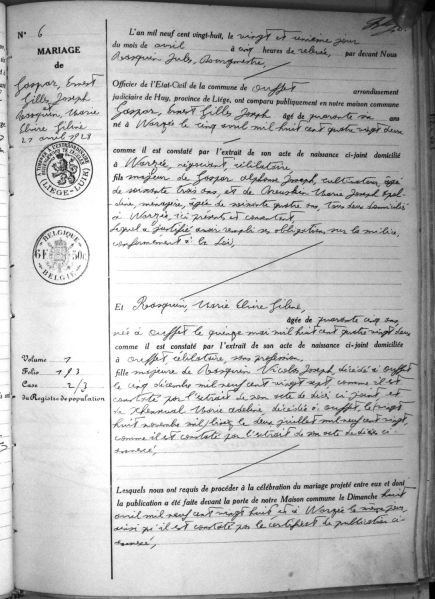 N° 6
MARIAGE
de
Gaspar, Ernest
Gilles Joseph
et
Rosquin, Marie
Elvire Céline
27 avril 1928
LIÈGE-LUIK
BELGIQUE
6F 50c
BELGIE
Volume 1
Folio 1/3
Case 2/3
du Registre de population
L'an mil neuf cent vingt-huit, le vingt et unième jour
du mois de avril à cinq heures de relevée, par devant Nous
Rosquin Jules, Bourgmestre,
Officier de l'Etat-Civil de la commune de Ouffet arrondissement
judiciaire de Huy, province de Liége, ont comparu publiquement en notre maison commune
Gaspar, Ernest Gilles Joseph âgé de quarante six ans
né à Warzée le cinq avril mil huit cent quatre vingt deux
comme il est constaté par l'extrait de son acte de naissance ci-joint domicilié
à Warzée, négociant célibataire,
fils majeur de Gaspar Alphonse Joseph, cultivateur, âgé
de soixante trois ans, et de Marie Joseph
ménagère, âgée de soixante quatre ans, tous deux domiciliés
à Warzée, ici présents et consentant,
Lequel a justifié avoir rempli ses obligations sur la milice,
conformément à la loi,
Et Rosquin, Marie Elvire Céline,
âgée de quarante cinq ans,
née à Ouffet le quinze mai mil huit cent quatre vingt deux
comme il est constaté par l'extrait de son acte de naissance ci-jointe domiciliée
à Ouffet célibataire, sans profession,
fille majeure de Rosquin Nicolas Joseph, décédé à Ouffet
le cinq décembre mil neuf cent vingt sept, comme il est
constaté par l'extrait de son acte de décès ci joint, et
de Marie Adeline, décédée à Ouffet, le vingt
huit novembre mil (lisez le deux juillet mil neuf cent vingt,
comme il est constaté par l'extrait de son acte de décès ci
annexé,
Lesquels nous ont requis de procéder à la célébration du mariage projeté entre eux et dont
la publication a été faite devant la porte de notre Maison commune le Dimanche huit
avril mil neuf cent vingt huit et à Warzée le même jour
ainsi qu'il est constaté par le certificat de publication ci-
annexé,